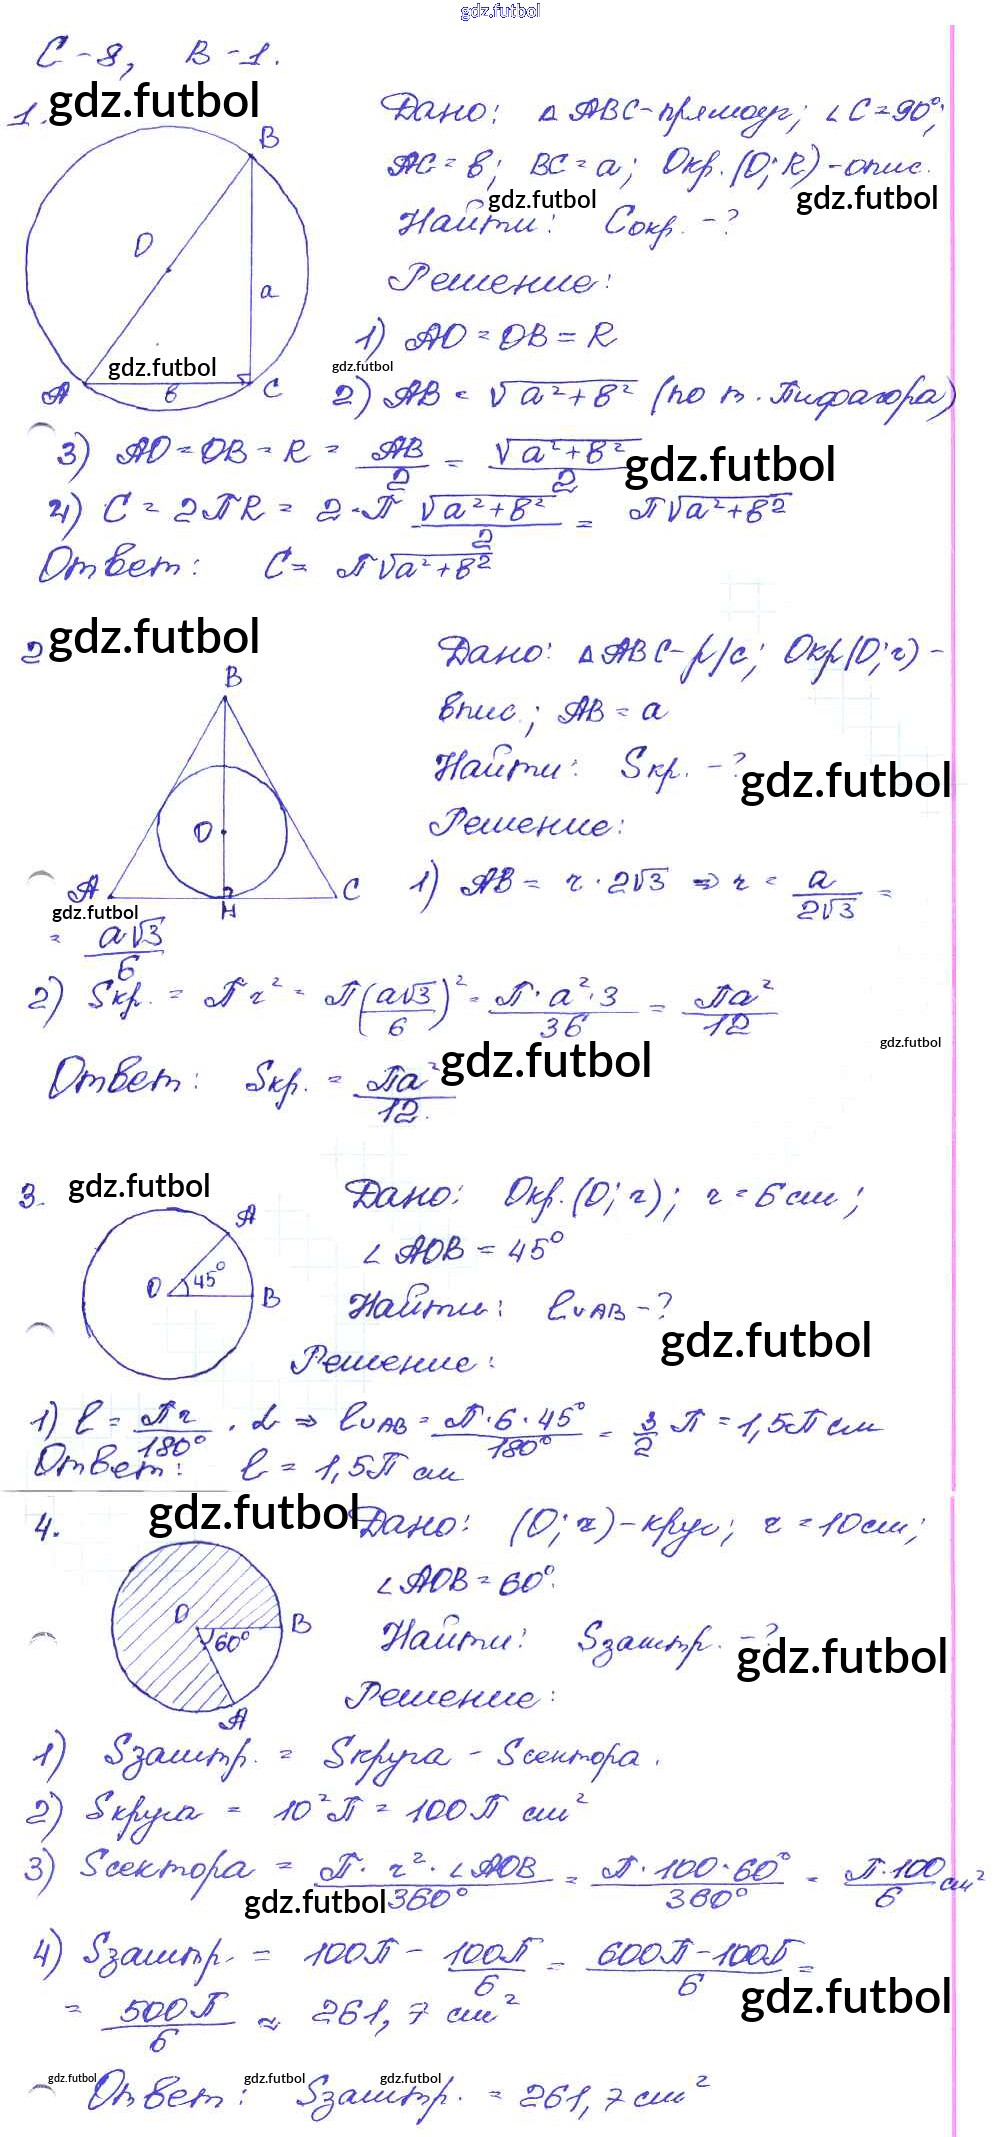 gdz.futbol
С-8, В-1.
1. gdz.futbol
Дано: △ ABC-прямоуг; ∠C=90°;
AC=в; BC=a; Окр.(O;R)-опис.
gdz.futbol gdz.futbol
Найти: Cокр. -?
Решение:
B
O
a
A в C
gdz.futbol
1) AO=OB=R
gdz.futbol
2) AB=√a²+в² (по т. Пифагора)
3) AO=OB=R=AB/2=√a²+в²/2
gdz.futbol
4) C=2ПR=2·П √a²+в²/2= П√a²+в²
Ответ: C= П√a²+в²
2 gdz.futbol
Дано: △ABC-р/с; Окр(O;r)-
впис.; AB=a
Найти: Sкр. -?
gdz.futbol
Решение:
B
O
A H C
gdz.futbol
1) AB=r·2√3 ⇒ r=a/2√3=
=a√3/6
2) Sкр.=Пr²=П(a√3/6)²=П·a²·3/36=Пa²/12
gdz.futbol
Ответ: Sкр.=Пa²/12.
gdz.futbol
3. gdz.futbol
Дано: Окр.(O;r); r=6см;
∠AOB=45°
Найти: l∪AB-?
gdz.futbol
Решение:
A
O 45° B
1) l=Пr/180°·α ⇒ l∪AB=П·6·45°/180°=3/2 П=1,5П см
Ответ: l=1,5П см
4. gdz.futbol
Дано: (O;r)-круг; r=10см;
∠AOB=60°.
Найти: Sзаштр. -?
gdz.futbol
Решение:
O B
60°
A
1) Sзаштр.=Sкруга-Sсектора.
2) Sкруга=10²П=100П см²
3) Sсектора=П·r²·∠AOB/360°=П·100·60°/360°=П·100/6 см²
gdz.futbol
4) Sзаштр.=100П-100П/6=600П-100П/6=
gdz.futbol
=500П/6≈261,7 см²
gdz.futbol gdz.futbol gdz.futbol
Ответ: Sзаштр.=261,7см²